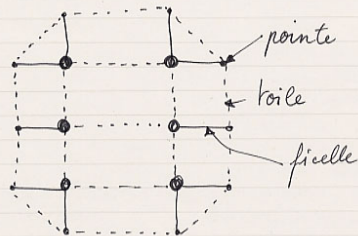 pointe
toile
ficelle